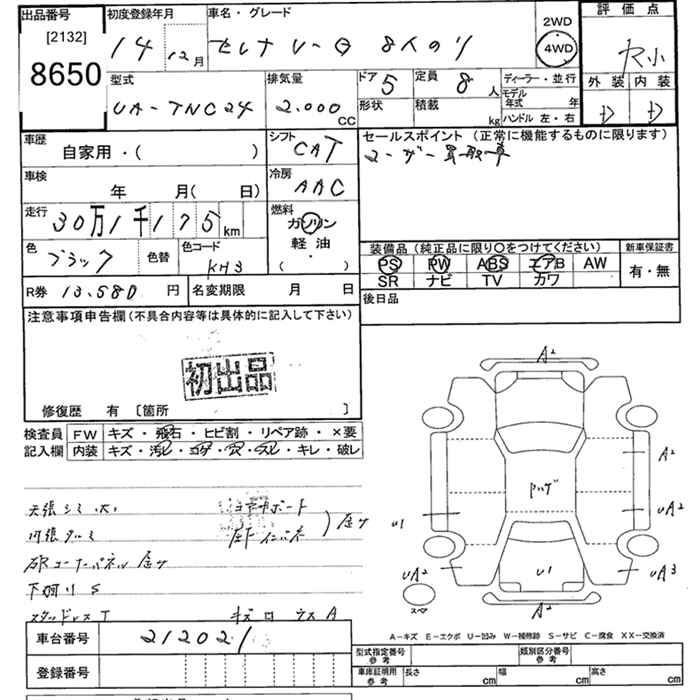 出品番号
[2132]
8650
初度登録年月
14 年 12月
車名・グレード
セレナ V-G 8人のり
2WD
4WD
評価点
外装 内装
D D
型式
UA-TNC24
排気量
2.000
CC
ドア 5
定員 8 人
形状
積載 kg
ディーラー・並行
モデル年式 年
ハンドル 左・右
車歴
自家用・( )
シフト
CAT
車検
年 月( 日)
冷房
AAC
走行
30万1千175km
燃料
ガソリン
軽油
・
( )
色
ブラック
色替
色コード
KH3
R券 13.580 円
名変期限 月 日
セールスポイント (正常に機能するものに限ります)
ユーザー買取車
装備品 (純正品に限り〇をつけてください)
PS PW ABS エアB AW
SR ナビ TV カワ
新車保証書
有・無
後日品
注意事項申告欄(不具合内容等は具体的に記入して下さい)
初出品
修復歴 有 [箇所 ]
検査員記入欄
FW キズ・飛石・ヒビ割・リペア跡・×要
内装 キズ・汚レ・コゲ・穴・スレ・キレ・破レ
天張シミ 大
下廻り S
スタッドレス T
キズ凹 ウス A
車台番号
212021
登録番号
A2
A2
UA2
U1
UA2
UA3
U1
A2
スペア
A-キズ E-エクボ U-凹み W-補修跡 S-サビ C-腐食 XX-交換済
型式指定番号 参考
類別区分番号 参考
車庫証明用 参考
長さ cm
幅 cm
高さ cm